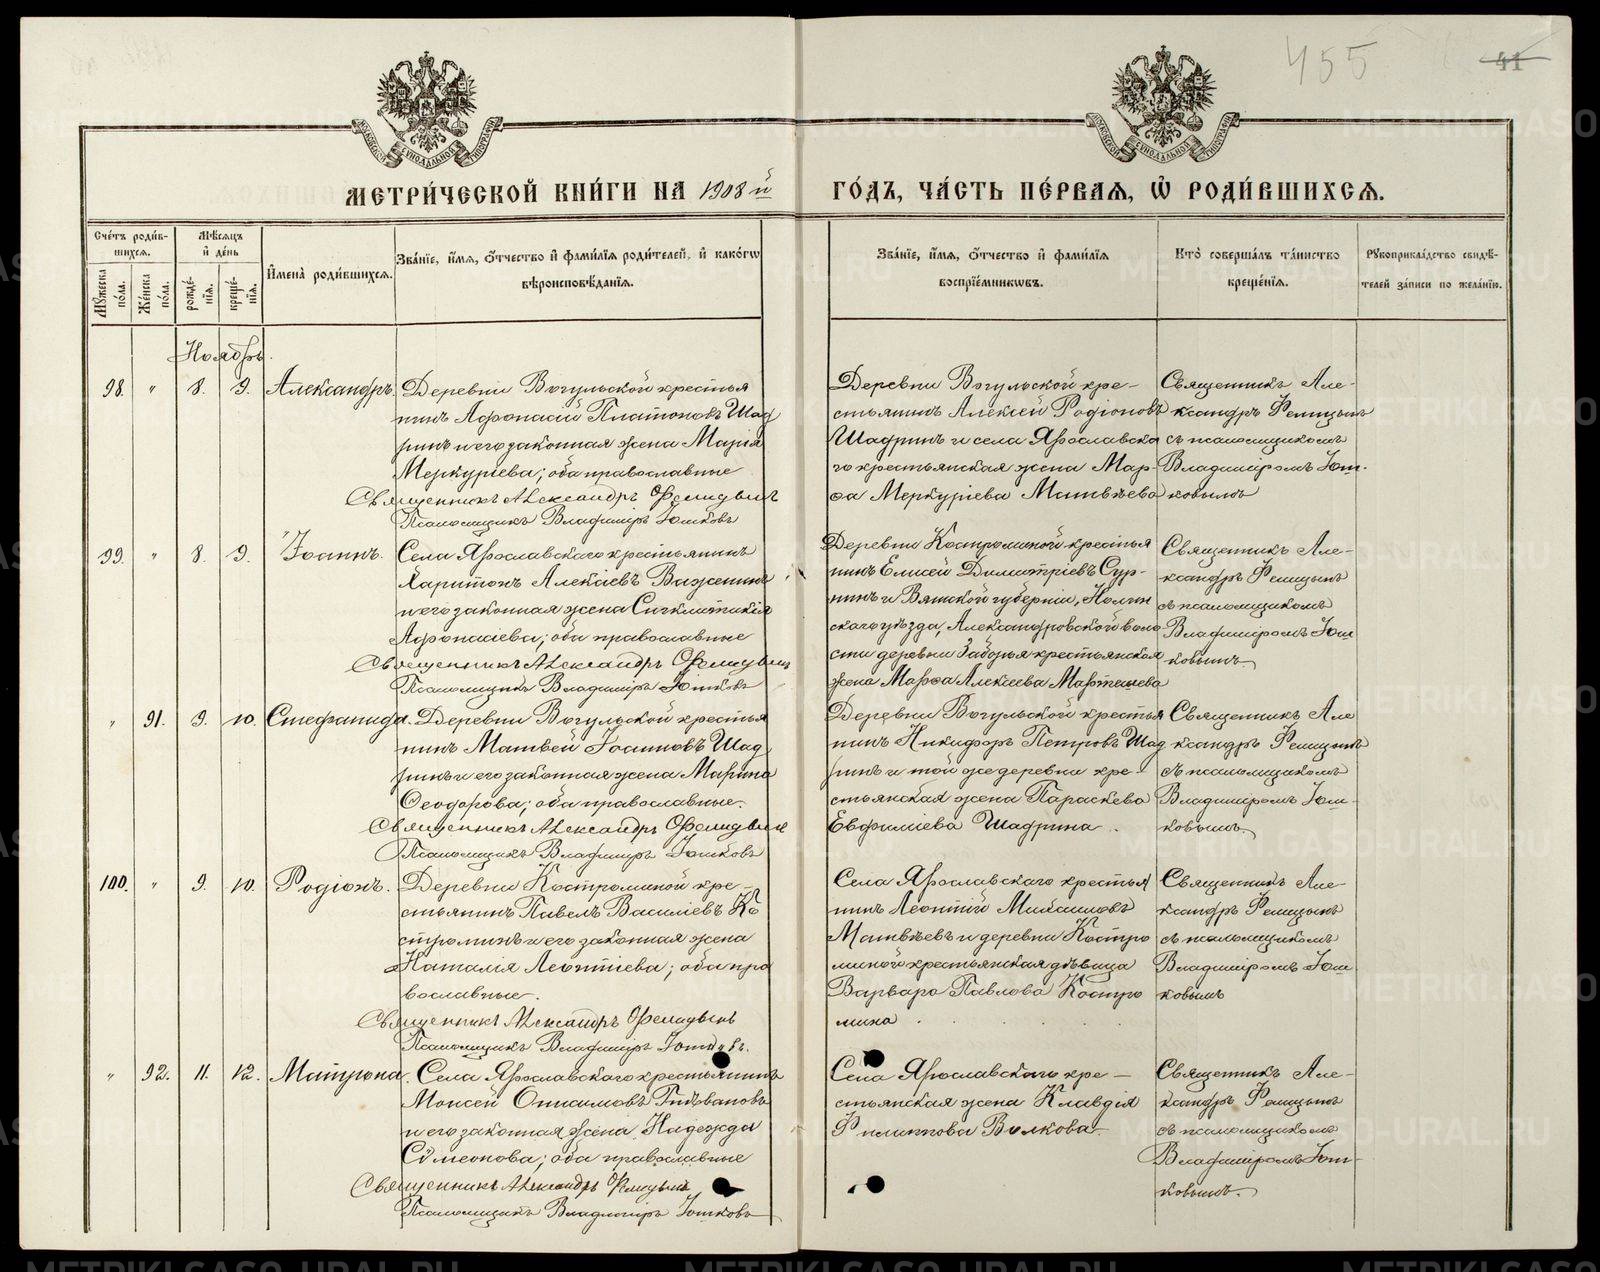 455
41
МОСКОВСКОЙ СѴНОДАЛЬНОЙ ТИПОГРАФІИ
МОСКОВСКОЙ СѴНОДАЛЬНОЙ ТИПОГРАФІИ
МЕТРИ́ЧЕСКОЙ КНИ́ГИ НА 1908 й
ГО́ДЪ, ЧА́СТЬ ПЕ́РВАЯ, Ѡ҆ РОДИ́ВШИХСѦ.
Сче́тъ роди́в-
шихсѧ.
Мꙋжеска по́ла.
Же́нска по́ла.
Мѣ́сѧцъ
и҆ де́нь
рожде́-
нїѧ.
креще́-
нїѧ.
И҆мена̀ роди́вшихсѧ.
Зва́нїе, и҆́мѧ, ѻ҆́тчество и҆ фами́лїѧ роди́телей, и҆ како́гѡ
вѣроисповѣ́данїѧ.
Зва́нїе, и҆́мѧ, ѻ҆́тчество и҆ фами́лїѧ
воспрїе́мникѡвъ.
Кто̀ соверша́лъ та́инство
креще́нїѧ.
Рꙋкоприкла́дство свидѣ́-
телей за́писи по жела́нїю.
Ноябрь.
98. " 8. 9. Александръ.
Деревни Вогульской крестья
нинъ Аѳонасій Платоновъ Шад
ринъ и его законная жена Марія
Меркуріева; оба православные
Священникъ Александръ Фелицынъ
Псаломщикъ Владиміръ Юшковъ
Деревни Вогульской кре-
стьянинъ Алексій Родіоновъ
Шадринъ и села Ярославска
го крестьянская жена Мар-
ѳа Меркуріева Матвѣева
Священникъ Але-
ксандръ Фелицынъ
съ псаломщикомъ
Владиміромъ Юш-
ковымъ
99. " 8. 9. Іоаннъ.
Села Ярославскаго крестьянинъ
Харитонъ Алексіевъ Важенинъ
и его законная жена Сигклитикія
Аѳонасіева; оба православные
Священникъ Александръ Фелицынъ
Псаломщикъ Владиміръ Юшковъ
Деревни Костроминой крестья
нинъ Елисей Димитріевъ Сур-
нинъ и Вятской губерніи, Нолин
скаго уѣзда, Александровской воло
сти деревни Заборья крестьянская
жена Марѳа Алексіева Мартшева
Священникъ Але-
ксандръ Фелицынъ
съ псаломщикомъ
Владиміромъ Юш
ковымъ
" 91. 9. 10. Стефанида.
Деревни Вогульской крестья
нинъ Матвей Іоанновъ Шад
ринъ и его законная жена Марина
Ѳеодорова; оба православные.
Священникъ Александръ Фелицынъ
Псаломщикъ Владиміръ Юшковъ
Деревни Вогульской крестья
нинъ Никифоръ Петровъ Шад
ринъ и той же деревни кре-
стьянская жена Параскева
Евфиміева Шадрина.
Священникъ Але
ксандръ Фелицынъ
съ псаломщикомъ
Владиміромъ Юш-
ковымъ
100. " 9. 10. Родіонъ.
Деревни Костроминой кре-
стьянинъ Павелъ Василіевъ Ко
строминъ и его законная жена
Наталія Леонтіева; оба пра
вославные.
Священникъ Александръ Фелицынъ
Псаломщикъ Владиміръ Юшковъ.
Села Ярославскаго крестья
нинъ Леонтій Михаиловъ
Матвѣевъ и деревни Костро
миной крестьянская дѣвица
Варвара Павлова Костро
мина
Священникъ Але-
ксандръ Фелицынъ
съ псаломщикомъ
Владиміромъ Юш
ковымъ
" 92. 11. 12. Матрона.
Села Ярославскаго крестьянинъ
Моисей Онисимовъ Голованов
и его законная жена Надежда
Сѵмеонова; оба православные
Священникъ Александръ Фелицынъ
Псаломщикъ Владиміръ Юшковъ
Села Ярославскаго кре-
стьянская жена Клавдія
Филиппова Волкова.
Священникъ Але-
ксандръ Фелицынъ
съ псаломщикомъ
Владиміромъ Юш-
ковымъ.
METRIKI.GASO-URAL.RU